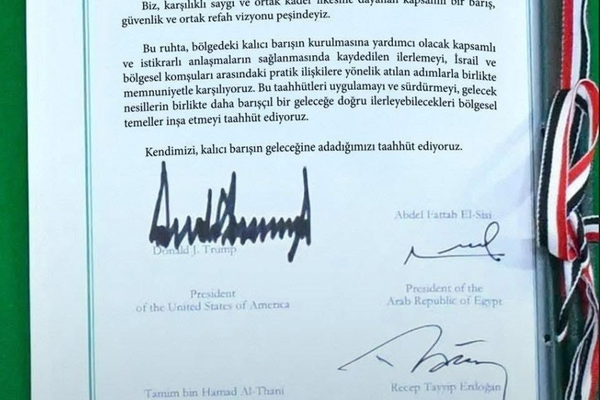 Biz, karşılıklı saygı ve ortak kader ilkesine dayanan kapsamlı bir barış,
güvenlik ve ortak refah vizyonu peşindeyiz.
Bu ruhta, bölgedeki kalıcı barışın kurulmasına yardımcı olacak kapsamlı
ve istikrarlı anlaşmaların sağlanmasında kaydedilen ilerlemeyi, İsrail ve
bölgesel komşuları arasındaki pratik ilişkilere yönelik atılan adımlarla birlikte
memnuniyetle karşılıyoruz. Bu taahhütleri uygulamayı ve sürdürmeyi, gelecek
nesillerin birlikte daha barışçıl bir geleceğe doğru ilerleyebilecekleri bölgesel
temeller inşa etmeyi taahhüt ediyoruz.
Kendimizi, kalıcı barışın geleceğine adadığımızı taahhüt ediyoruz.
Donald J. Trump
President
of the United States of America
Abdel Fattah El-Sisi
President of the
Arab Republic of Egypt
Tamim bin Hamad Al-Thani
Recep Tayyip Erdoğan